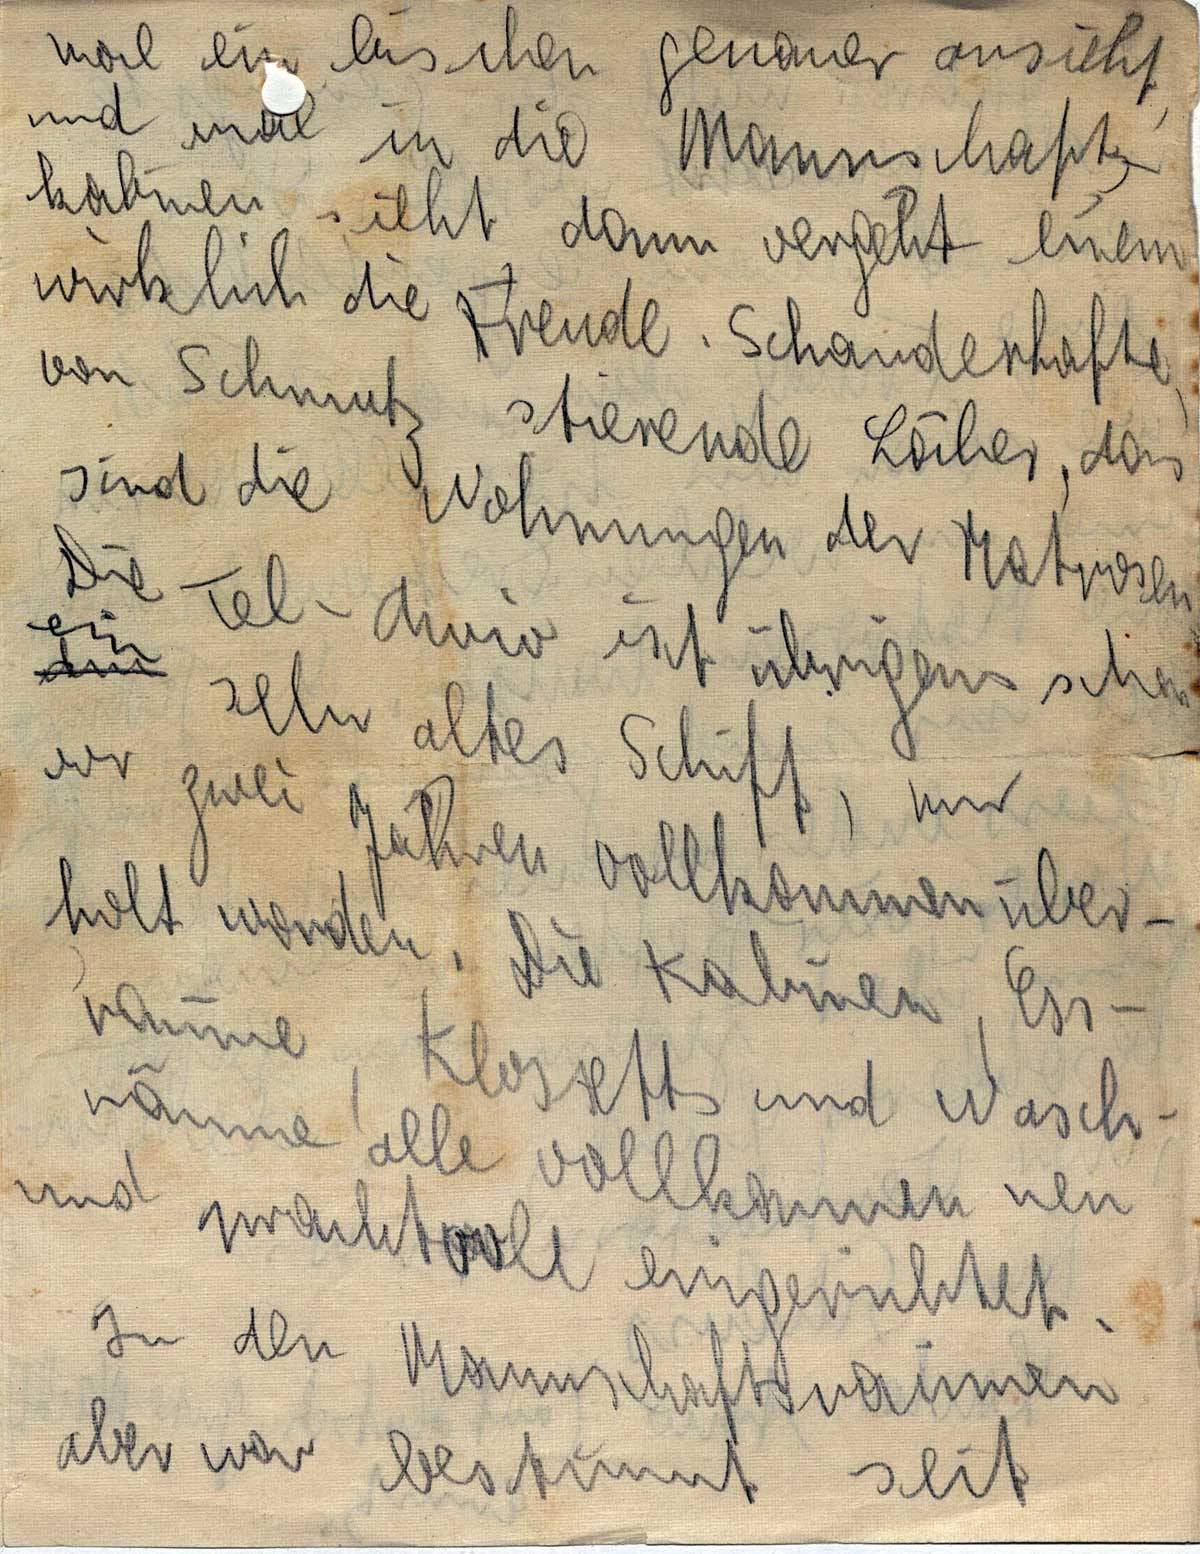 mal ein bischen genauer ansieht,
und mal in die Mannschafts-
kabinen sieht dann vergeht einem
wirklich die Freude. Schauderhafte,
von Schmutz stierende Löcher, das
sind die Wohnungen der Matrosen
Die Tel-Aviv ist übrigens schon
ein sehr altes Schiff, nur
vor zwei Jahren vollkommen über-
holt worden. Die Kabinen, Ess-
räume, Klosetts und Wasch-
räume, alle vollkommen neu
und prachtvoll eingerichtet.
In den Mannschaftsräumen
aber war bestimmt seit